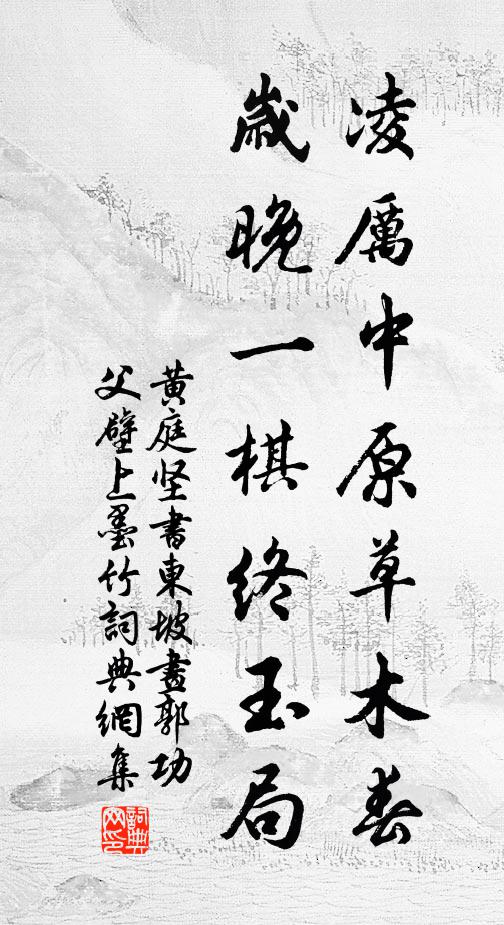 凌厲中原草木春
歲晚一棋終玉局
黄庭坚書東坡畫郭功
父壁上墨竹詞典網集
詞典網印